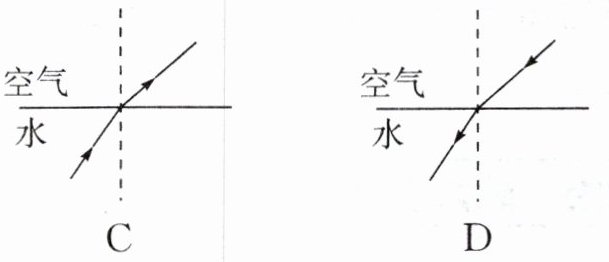 空气
水
C
空气
水
D